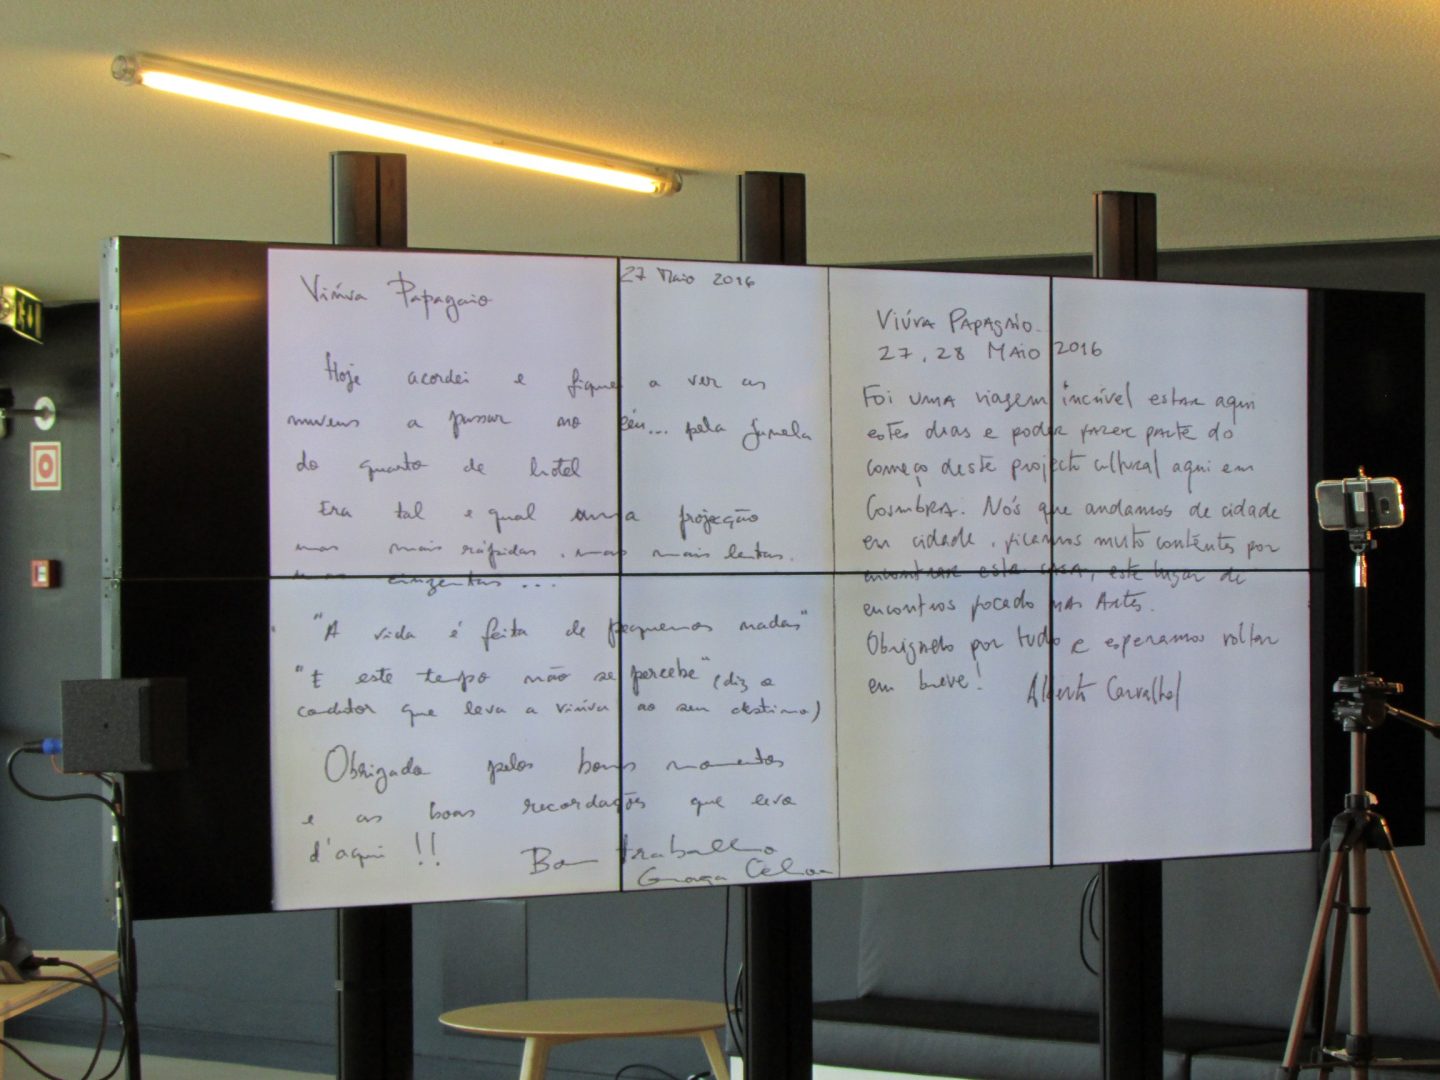 Viúva Papagaio
27 Maio 2016
Hoje acordei e fiquei a ver as
nuvens a passar no céu... pela janela
do quarto de hotel
Era tal e qual uma projecção
mais rápidas. mais lentas.
cinzentas ...
"A vida é feita de pequenos nadas"
"E este tempo não se percebe" (diz o
condutor que leva a viúva ao seu destino)
Obrigada pelos bons momentos
e as boas recordações que levo
d'aqui !!
Bom trabalho
Graça
VIÚVA PAPAGAIO.
27, 28 MAIO 2016
Foi uma viagem incrível estar aqui
estes dias e poder fazer parte do
começo deste projecto cultural aqui em
Coimbra. Nós que andamos de cidade
em cidade, ficamos muito contentes por
encontrar esta casa, este lugar de
encontros focado nas Artes.
Obrigado por tudo e esperamos voltar
em breve!
Alberto Carvalhal